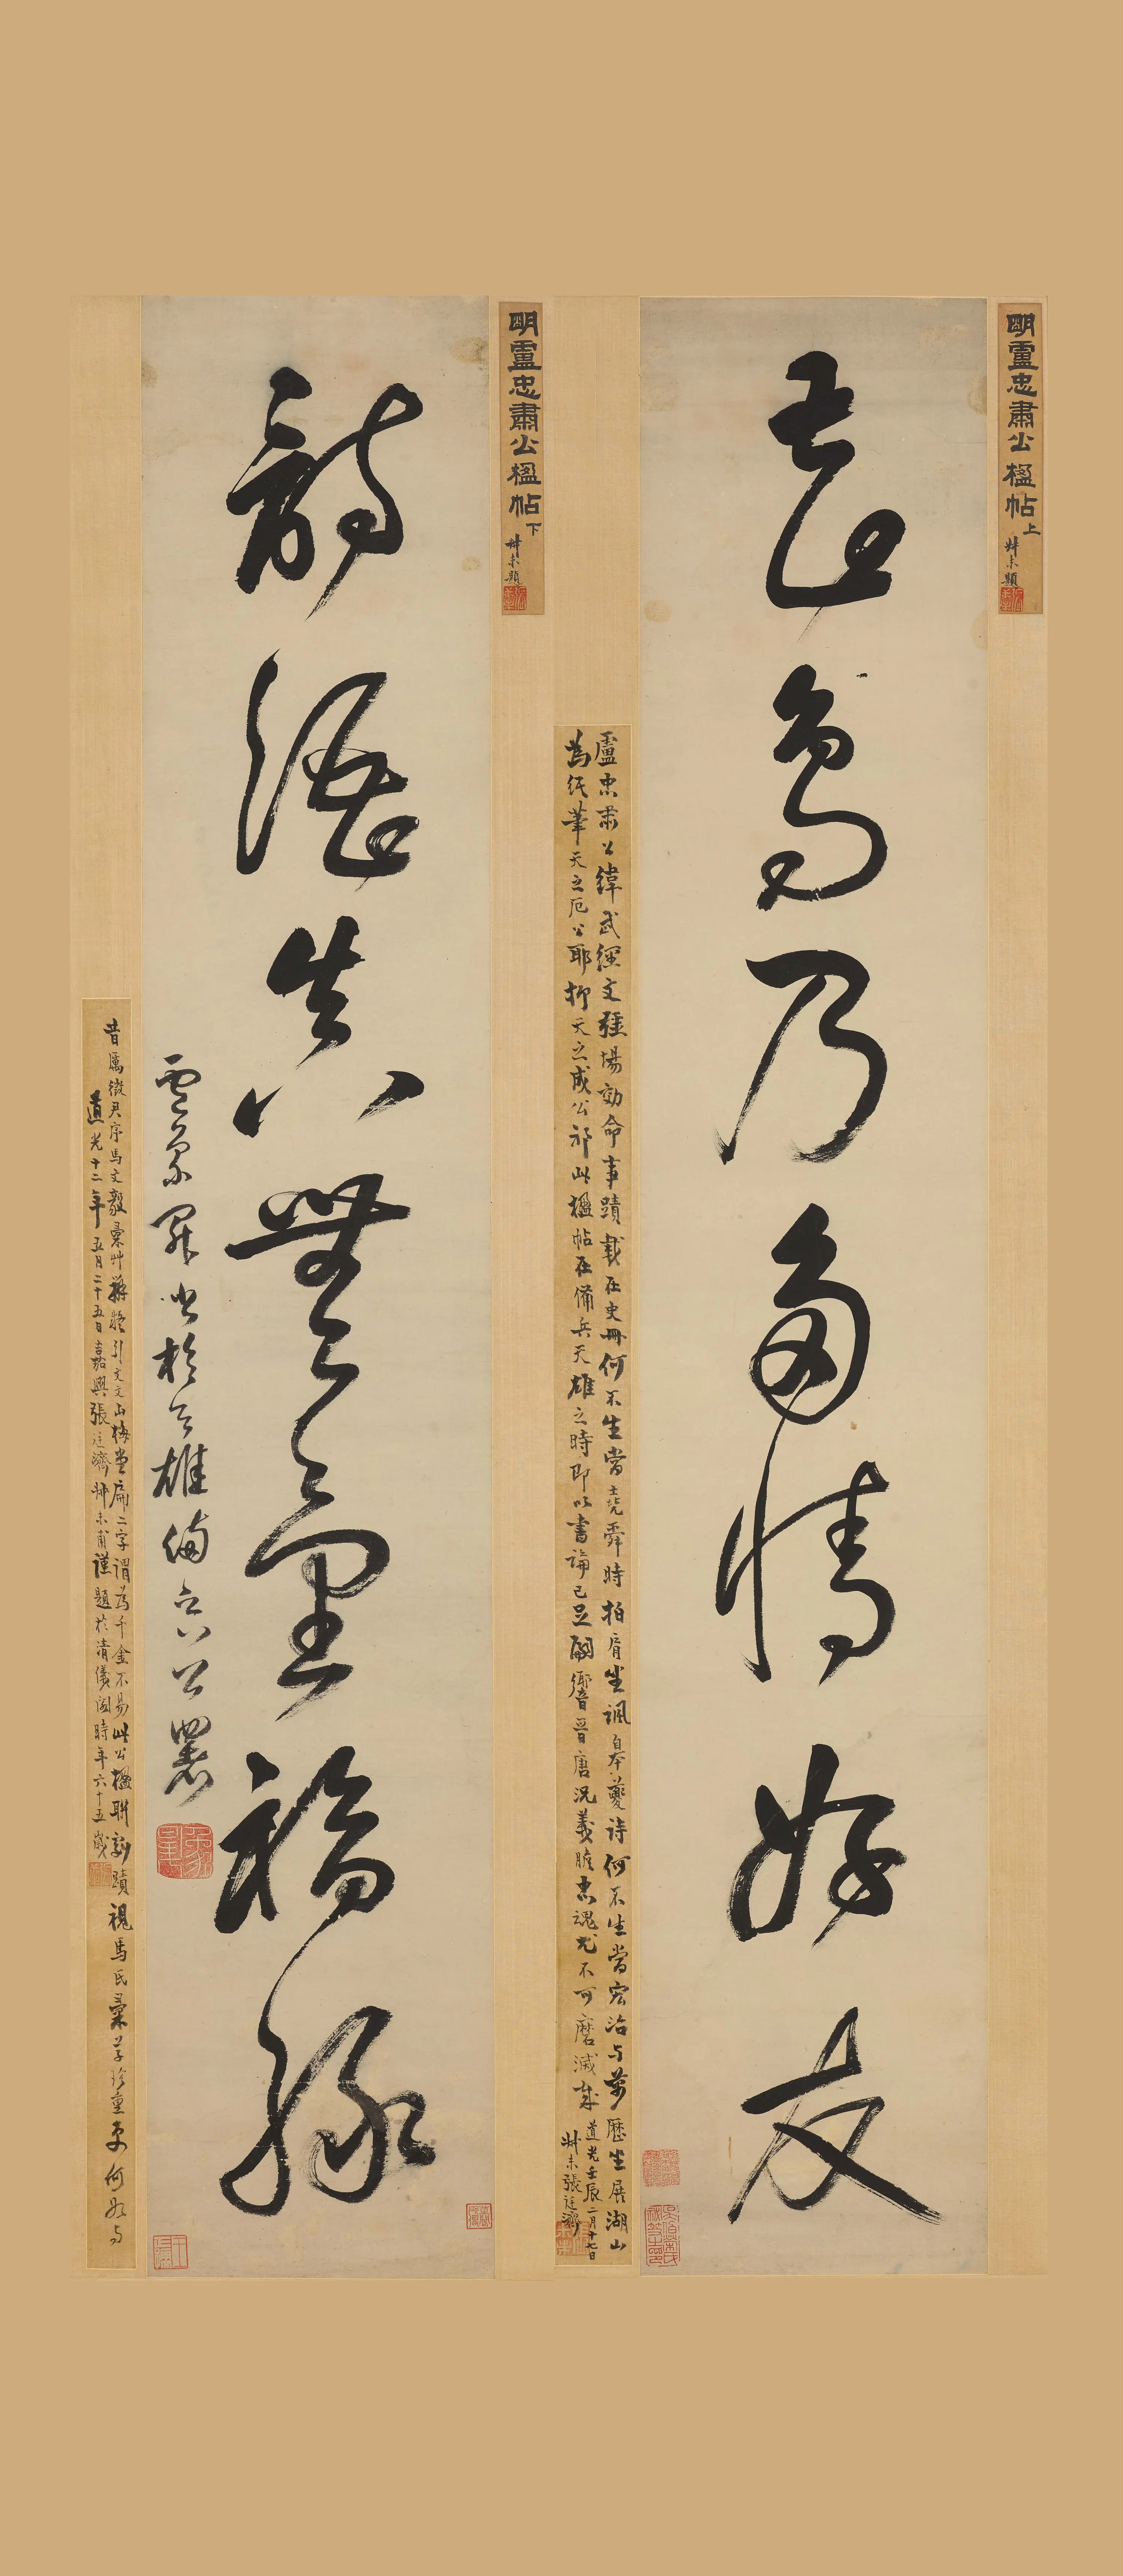 明盧忠肅公楹帖上
叔未題
花鳥乃多情好友
盧忠肅公緯武經文疆場効命事蹟載在史冊何不生當堯舜時拍肩坐諷皋夔詩何不生當宏治與萬歷坐展湖山
為紙筆天之厄公耶抑天之成公邪此楹帖在備兵天雄之時即以書論已足嗣響晉唐況義膽忠魂尤不可磨滅哉
道光壬辰二月十七日
叔未張廷濟
明盧忠肅公楹帖下
叔未題
詩真無量福緣
盧象昇書於天雄備兵公署
昔厲徵君序馬文毅彙艸辨疑引文文山梅堂扁二字謂為千金不易此公楹聯劇蹟視馬氏彙草珍重更何如与
道光十二年五月二十五日嘉興張廷濟叔未甫謹題於清儀閣時年六十五歲